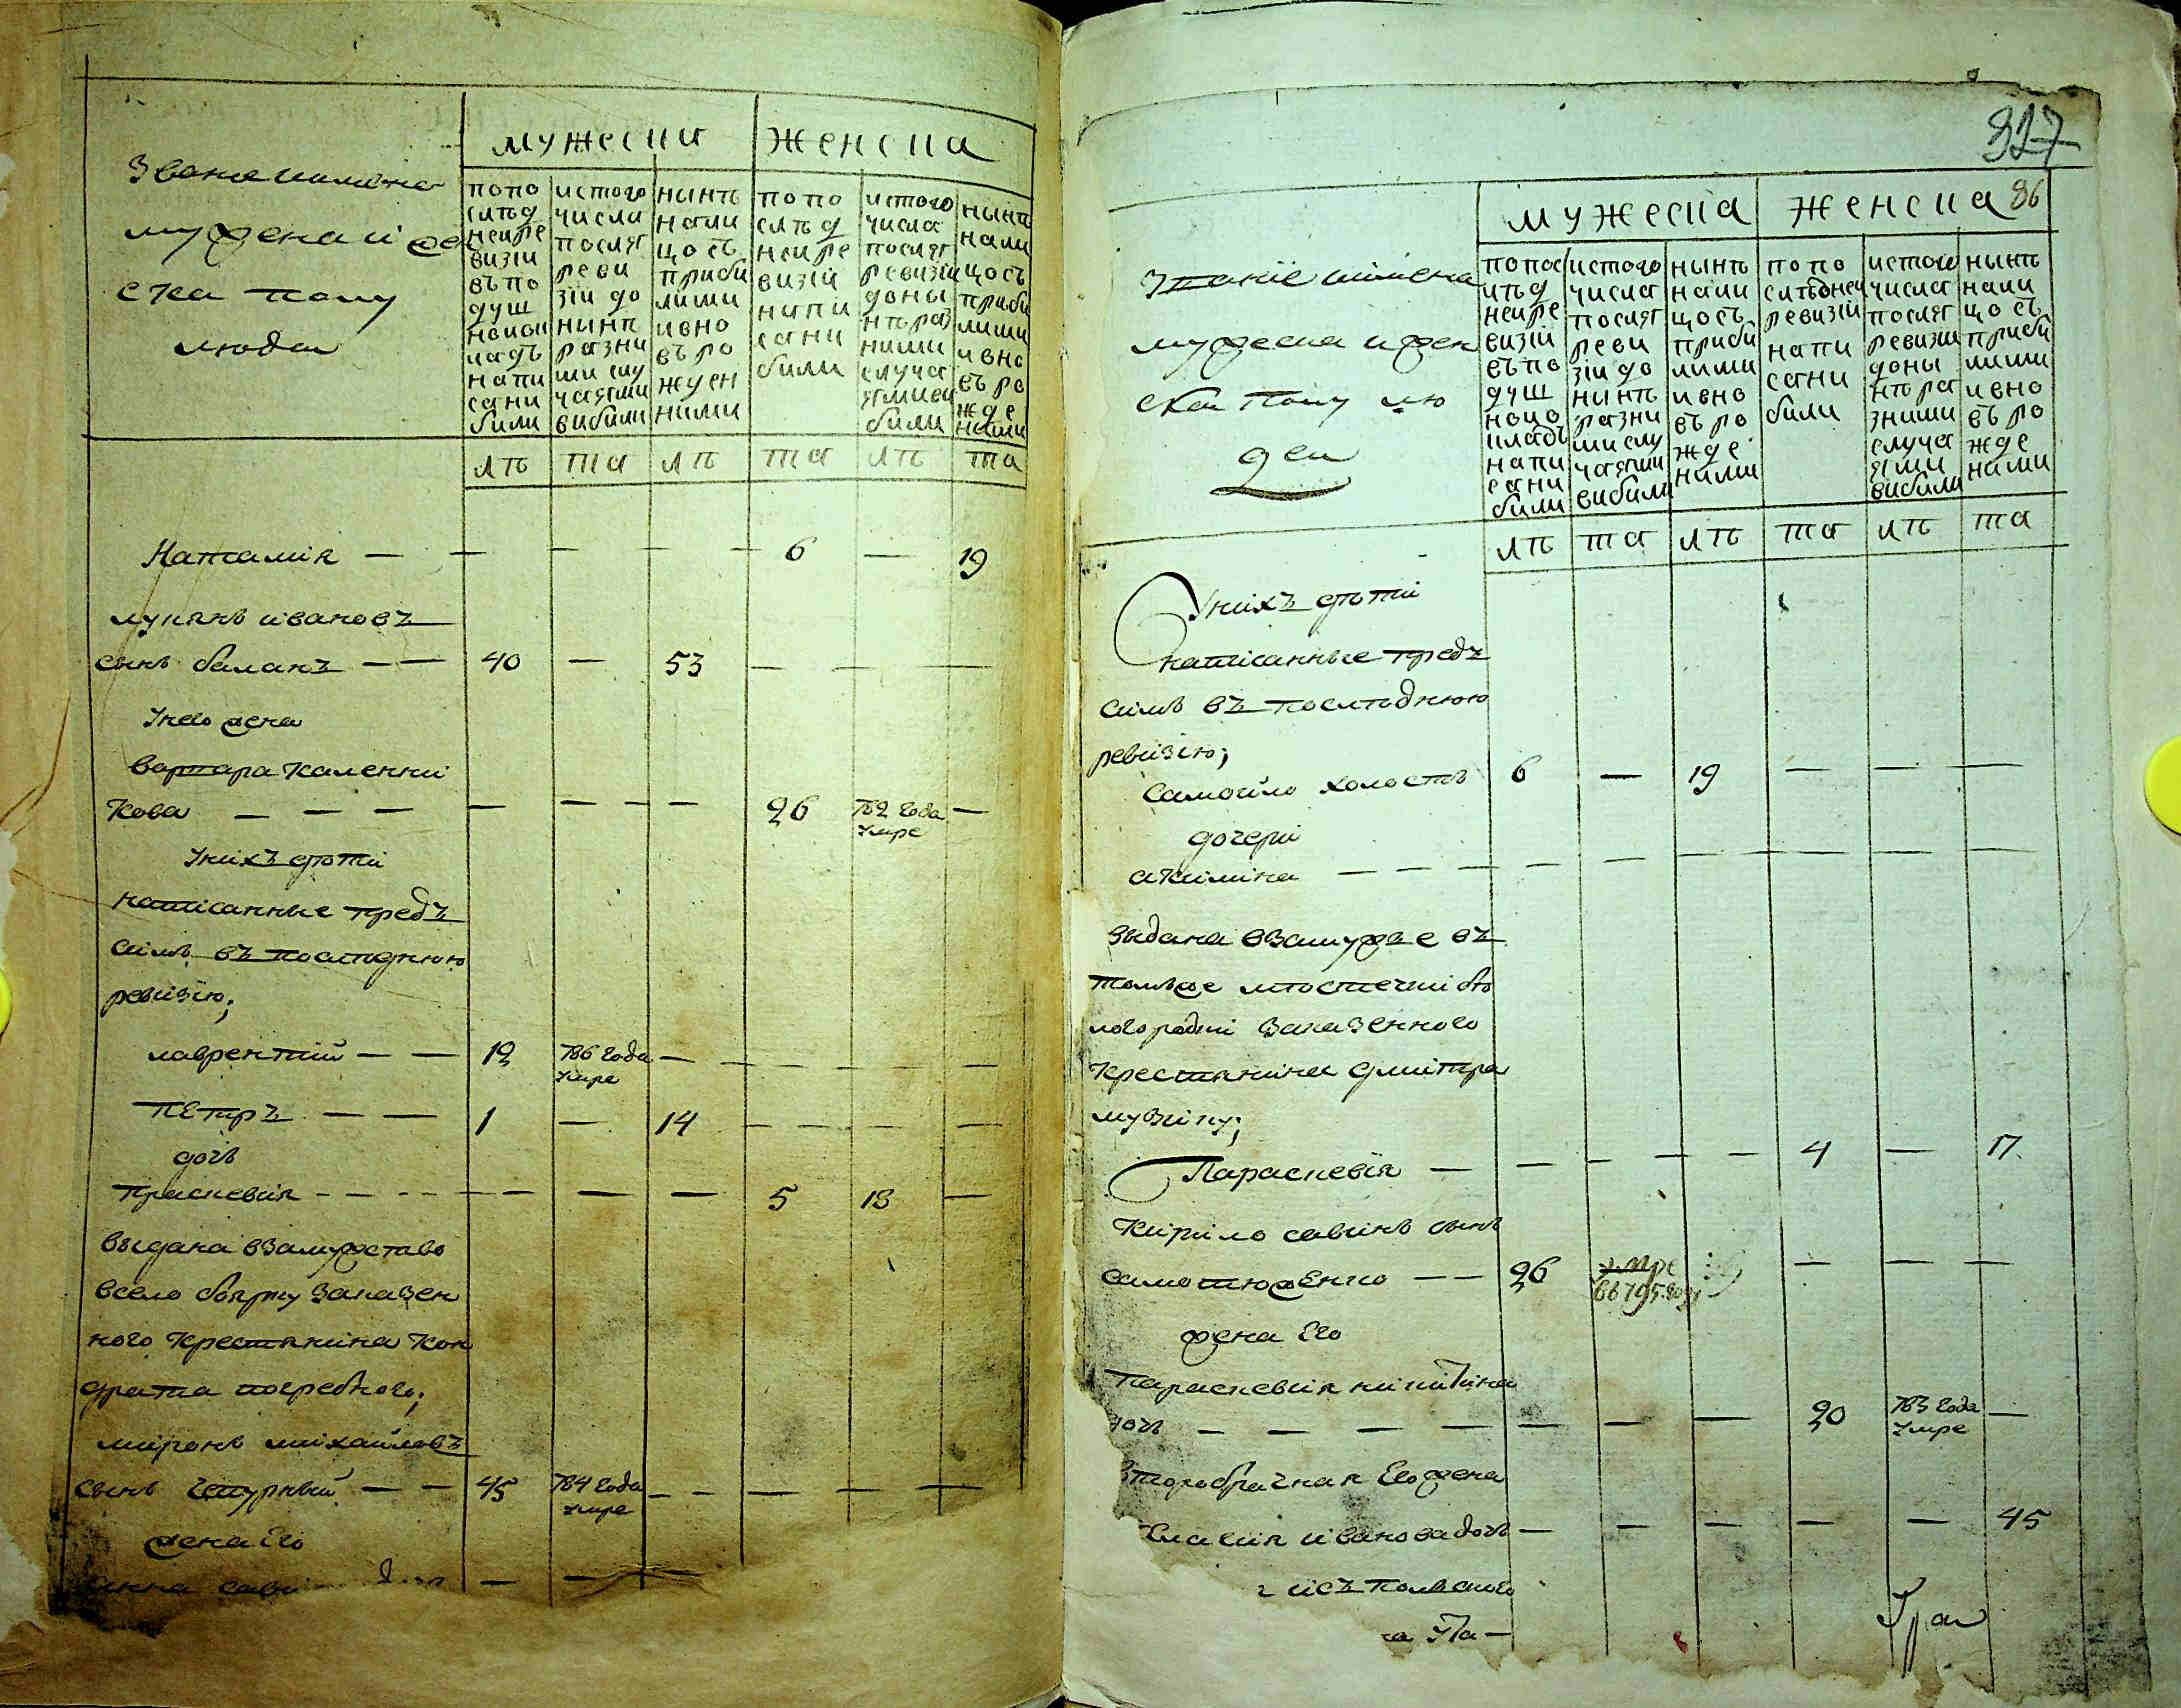 мужеска
женска
Звание имена
мужеска и жен
ска полу
люди
попо
слѣд
ней ре
визіи
въ по
душ
ной ок
ладъ
напи
сани
били
истого
числа
послѣ
реви
зіи до
нынѣ
разни
ми слу
чаями
вибили
нынѣ
нали
цо съ
приби
лими
и вно
въ ро
жден
ними
попо
слѣд
ней ре
визіи
напи
сани
били
истого
числа
послѣ
ревизіи
доны
нѣ раз
ними
случа
ями ви
били
нынѣ
нали
цо съ
приби
лими
и вно
въ ро
жде
ними
лѣ та лѣ та лѣ та
Наталия — — — — — 6 — 19
лукянъ ивановъ
сынъ баланъ — — 40 — 53 — — —
У него жена
варвара каленни
кова — — — — — — — 26 782 года умре —
У нихъ дѣти
написанные предъ
симъ въ последнюю
ревизію;
лаврентий — — 12 786 года умре — — — — —
Петръ — — 1 — 14 — — — —
дочь
Прасковия — — — — — — — 5 18 —
выдана взамужство
всело боярку заказен
ного крестянина Кон
драта погребного;
миронъ михайловъ
сынъ Чепурный — — 45 784 года умре — — — — —
жена Его
сави — — —
327
86
мужеска
женска
Звание имена
мужеска и жен
ска полу лю
деи
попос
лѣд
ней ре
визіи
въ по
душ
ной о
кладъ
напи
сани
били
истого
числа
послѣ
реви
зіи до
нинѣ
разни
ми слу
чаями
вибили
нынѣ
нали
цо съ
приби
лими
и вно
въ ро
жде
ними
попо
слѣдней
ревизіи
напи
сани
били
истого
числа
послѣ
ревизіи
доны
нѣ ра
зними
случа
ями
вибили
нынѣ
нали
цо съ
приби
лими
и вно
въ ро
жде
ними
лѣ та лѣ та лѣ та
У нихъ дѣти
написанные предъ
симъ въ последнюю
ревизію;
Самойло холостъ 6 — 19 — — —
дочери
акилина — — — — — — — — —
выдана взамужье въ
томъже мѣстечки бѣ
логородки заказенного
крестянина дмитра
музику;
Параскевія — — — — — 4 — 17
Кирило савинъ сынъ
самотюженко — — 26 умре въ 795 году — — —
жена Его
Параскевия никитина
дочь — — — — — — — 20 783 года умре —
Второбрачная Его жена
ивановадочъ — — — — — 45
исъ полского